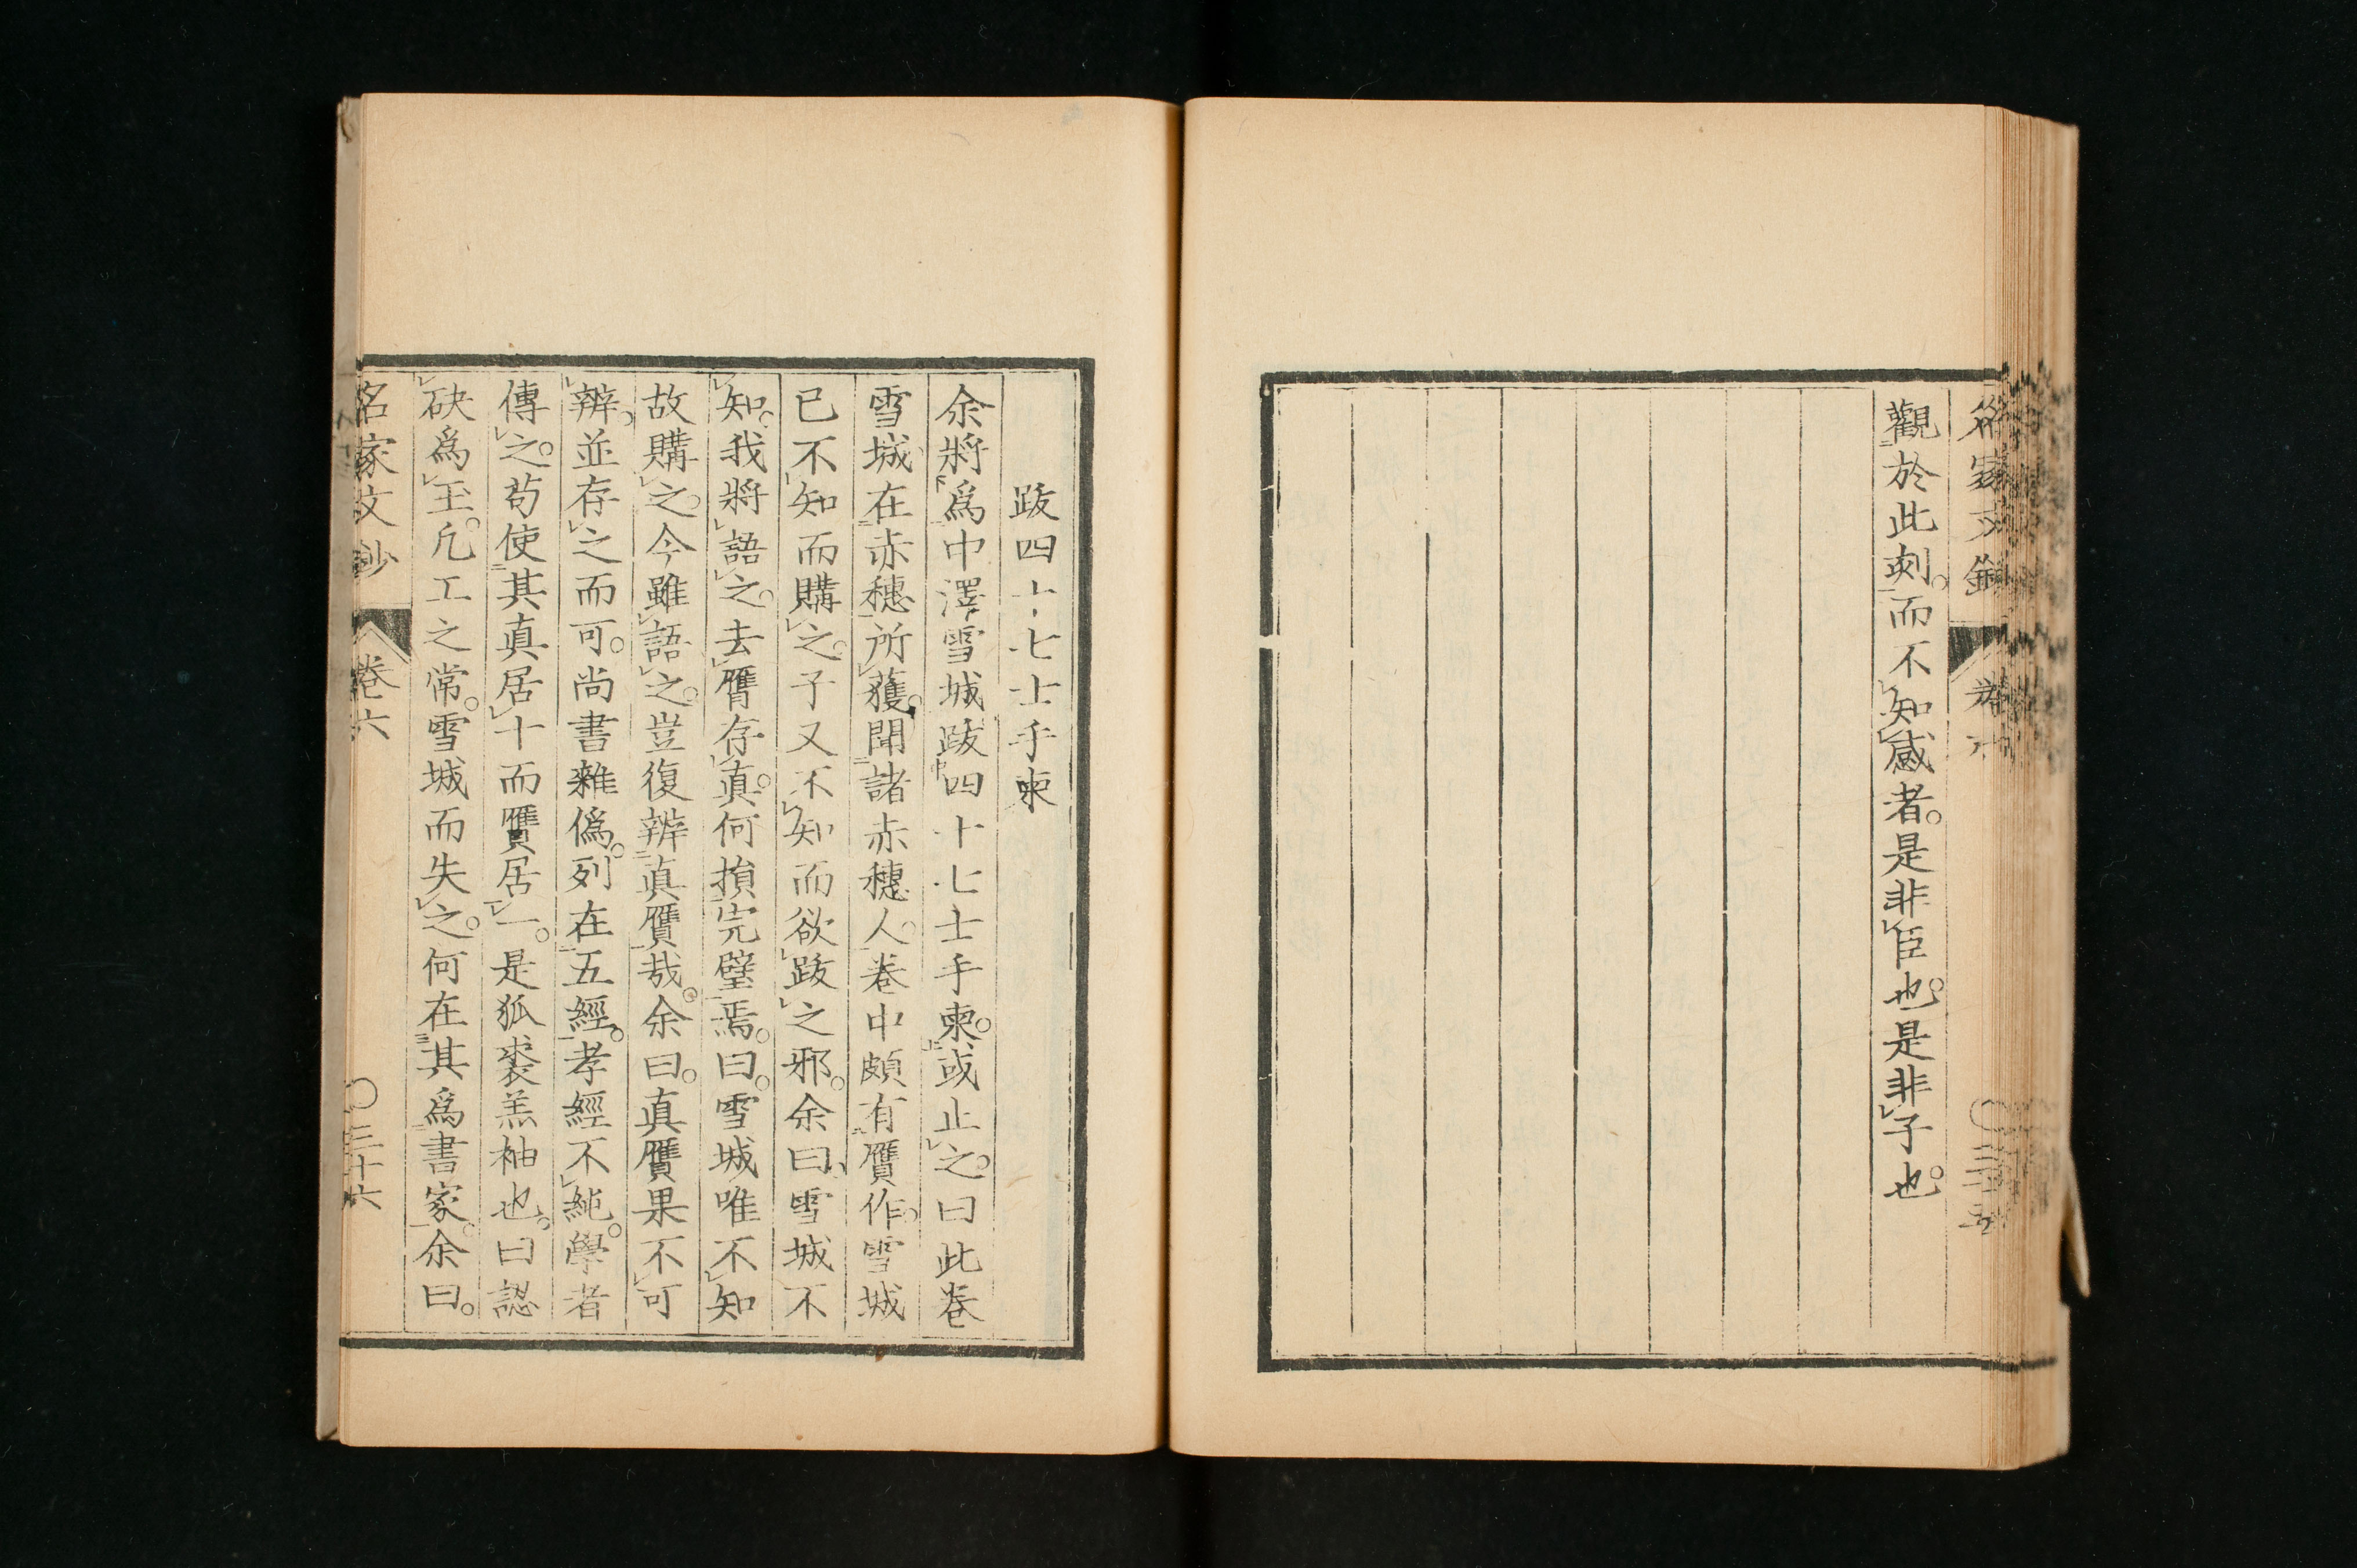 觀於此刻。而不知感者。是非臣也。是非子也。
跋四十七士手柬
余將爲中澤雪城跋四十七士手柬。或止之。曰此卷
雪城在赤穗所獲。聞諸赤穗人。卷中頗有贋作。雪城
已不知而購之。子又不知而欲跋之邪。余曰。雪城不
知。我將語之。去贋存真。何損完璧焉。曰。雪城唯不知
故購之。今雖語之。豈復辨真贋哉。余曰。真贋果不可
辨。並存之而可。尚書雜僞。列在五經。孝經不純。學者
傳之。苟使其真居十而贋居一。是狐裘羔袖也。曰認
砆爲玉。凡工之常。雪城而失之。何在其爲書家。余曰。
名家文鈔
卷六
〇三十六